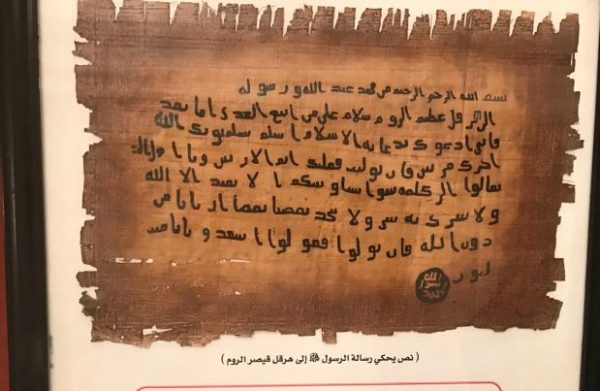 بسم الله الرحمن الرحيم من محمد عبد الله و رسوله
الى هرقل عظيم الروم سلام على من اتبع الهدى اما بعد
فانى ادعوك بدعاية الاسلام اسلم تسلم يوتك الله
اجرك مرتين فان توليت فعليك اثم الاريسين ويا اهل الكتاب
تعالوا الى كلمة سوا بيننا وبينكم الا نعبد الا الله
ولا نشرك به شيا ولا يتخذ بعضنا بعضا اربابا من
دون الله فان تولوا فقولوا اشهدوا بانا مسلمون
الله
رسول
محمد
( نص يحكي رسالة الرسول ﷺ إلى هرقل قيصر الروم )